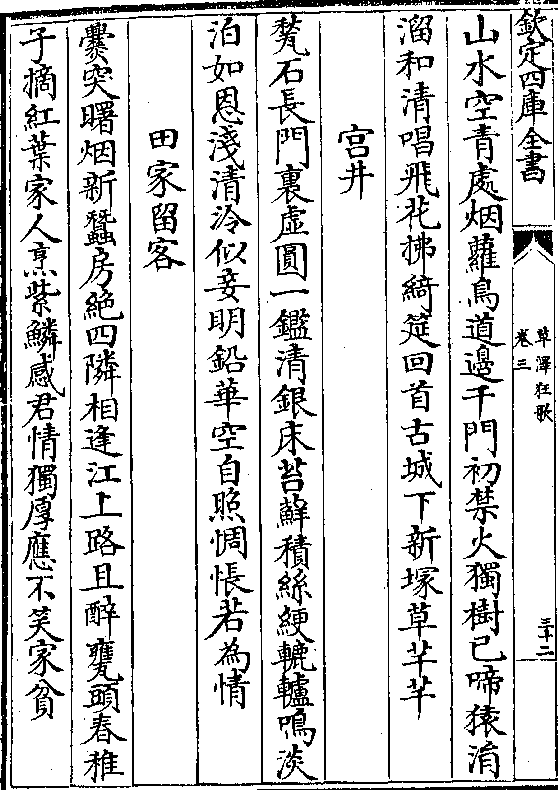 欽定四庫全書
草澤狂歌
卷三
三十二
山水空青處烟蘿鳥道邊千門初禁火獨樹已啼猿涓
溜和清唱飛花拂綺筵回首古城下新塚草芊芊
宫井
甃石長門裏虚圓一鑑清銀床苔蘚積絲綆轆轤鳴淡
泊如恩淺清泠似妾明鉛華空自照惆悵若為情
田家留客
爨突曙烟新蠶房絶四隣相逢江上路且醉甕頭春稚
子摘紅葉家人烹紫鱗感君情獨厚應不笑家貧